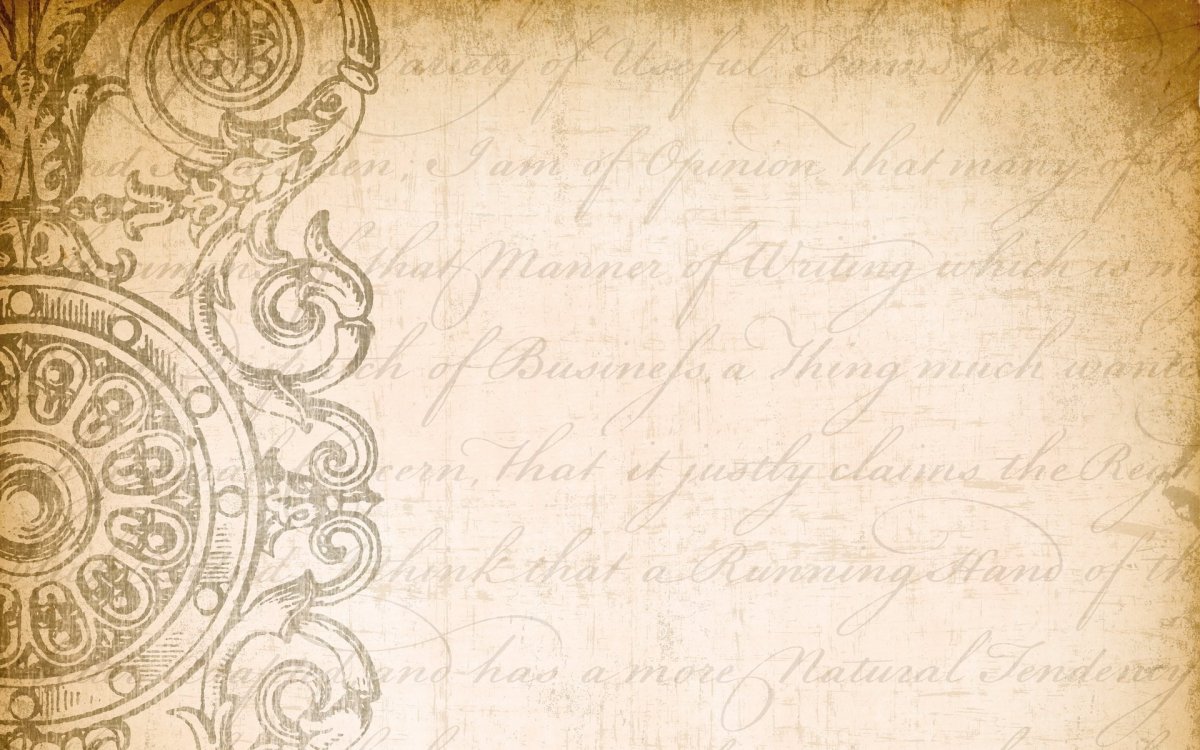 a Variety of Useful Forms practiced
I am of Opinion that many of
that Manner of Writing which is
of Busineſs, a Thing much
that it justly claims the
think that a Running Hand of
and has a more Natural Tendency